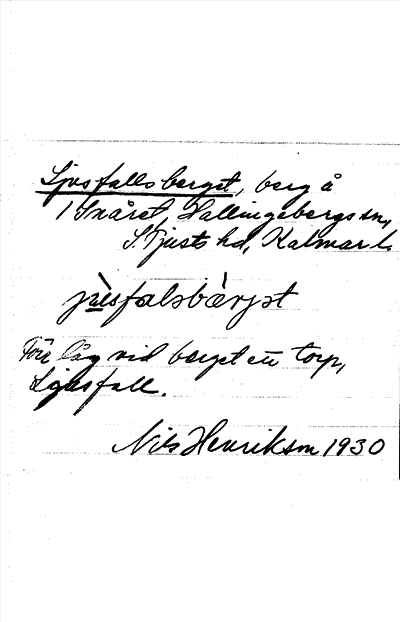 Ljusfallsberget, berg å
/ Snåret, Hallingebergs sn,
S. Tjusts hd, Kalmar l.
jùsfalsbæ̀rjət
Förr låg vid berget ett torp,
Ljusfall.
Nils Henrikson 1930